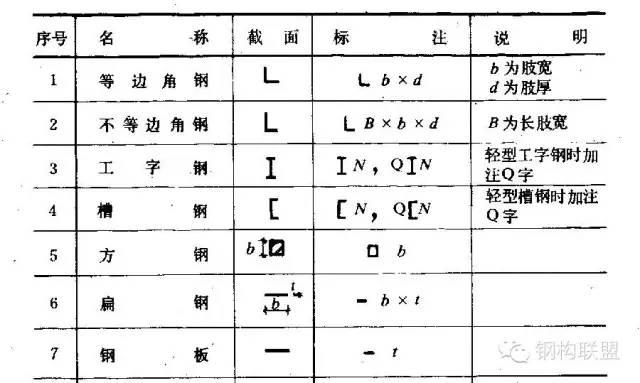 序号 名称 截面 标注 说明
1 等边角钢 b×d b为肢宽
d为肢厚
2 不等边角钢 B×b×d B为长肢宽
3 工字钢 N，Q N 轻型工字钢时加
注Q字
4 槽钢 N，Q N 轻型槽钢时加注
Q字
5 方钢 b b
6 扁钢 t b b×t
7 钢板 t
钢构联盟